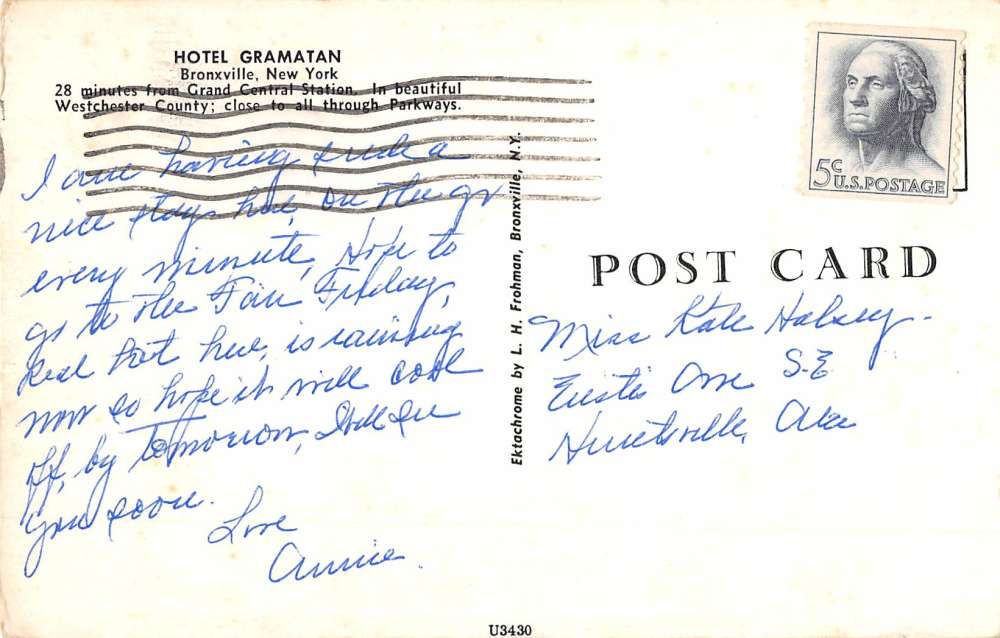 HOTEL GRAMATAN
Bronxville, New York
28 minutes from Grand Central Station. In beautiful
Westchester County; close to all through Parkways.
I am having such a
nice stay here, on the go
every minute, Hope to
go to the Fair Friday,
Real hot here, is raining
now so hope it will cool
off, by tomorrow, Will see
you soon.
Love
Annie.
Ektachrome by L. H. Frohman, Bronxville, N.Y.
5c
U.S. POSTAGE
POST CARD
Miss Kate Halsey
Eustis Ave S.E
Huntsville, Ala
U3430